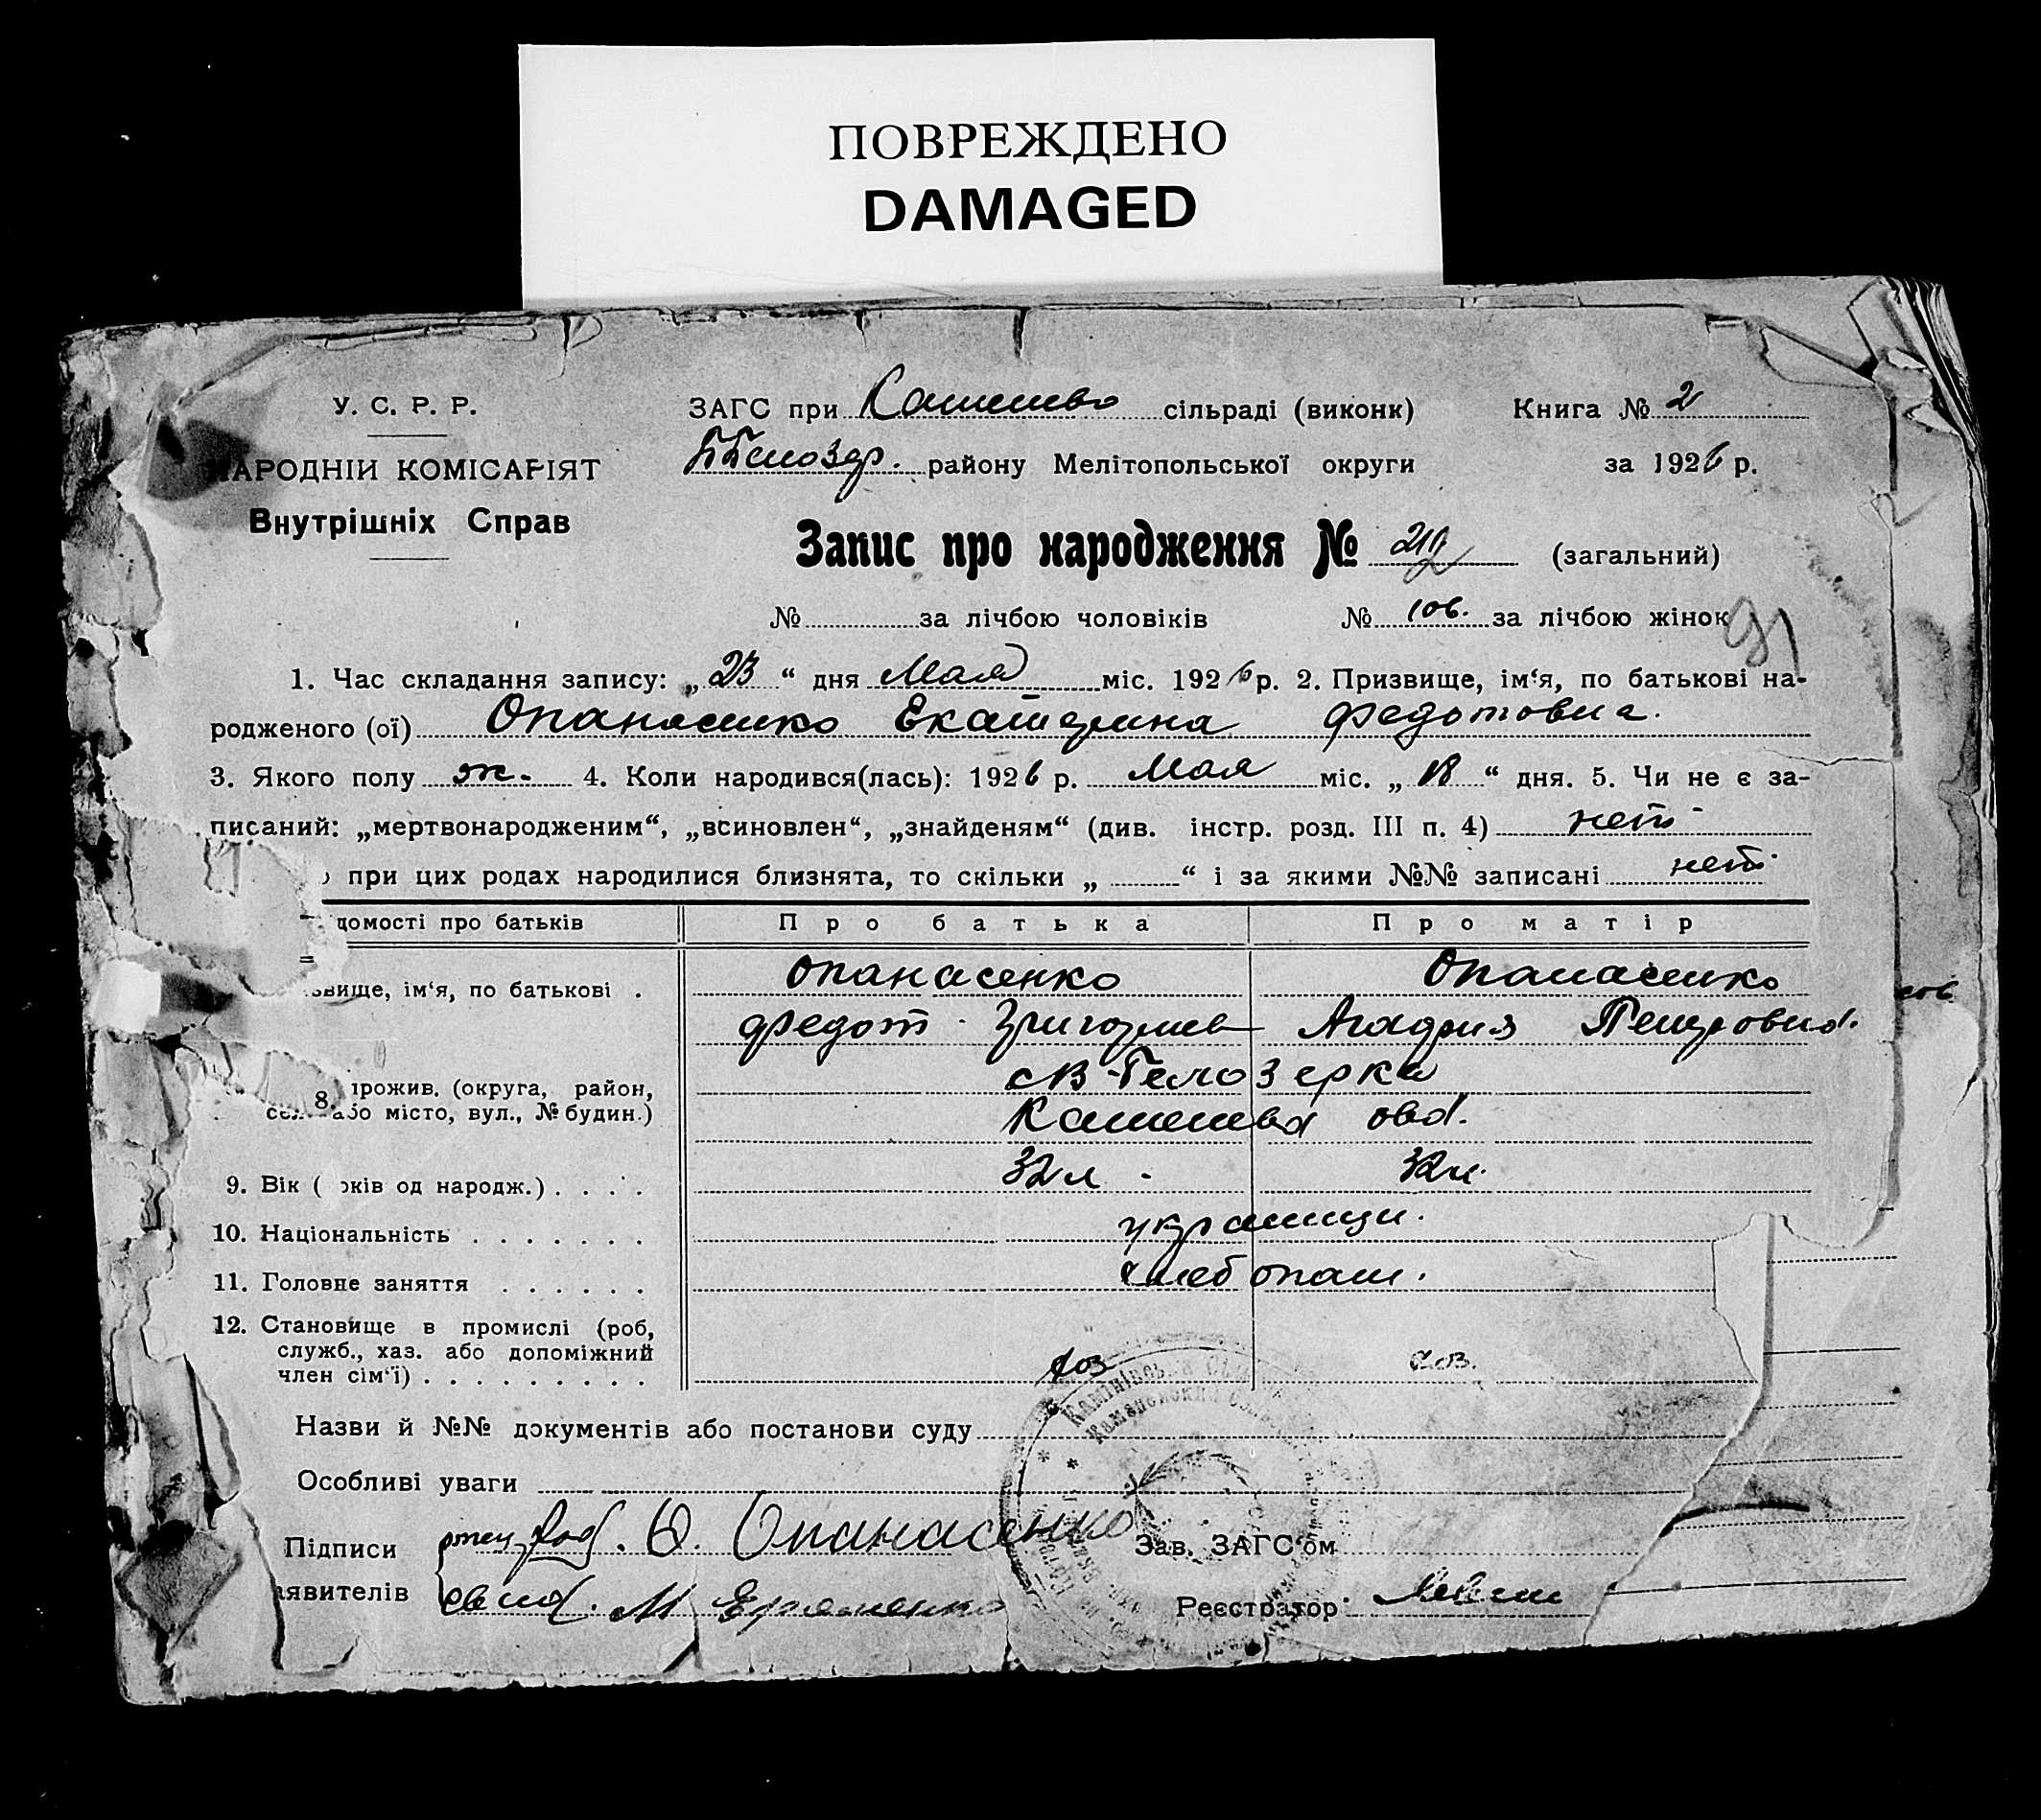 ПОВРЕЖДЕНО
DAMAGED
У. С. Р. Р.
НАРОДНІЙ КОМІСАРІЯТ
Внутрішніх Справ
ЗАГС при сільраді (виконк) Книга № 2
району Мелітопольської округи за 1926 р.
Запис про народження № (загальний)
№ за лічбою чоловіків № 106. за лічбою жінок
91
1. Час складання запису: „23“ дня Мая міс. 1926 р. 2. Призвище, ім‘я, по батькові на-
родженого (ої) Опанасенко Екатерина Федотовна.
3. Якого полу ж. 4. Коли народився(лась): 1926 р. Мая міс. „18“ дня. 5. Чи не є за-
писаний: „мертвонародженим“, „всиновлен“, „знайденям“ (див. інстр. розд. III п. 4) нет
при цих родах народилися близнята, то скільки „ “ і за якими №№ записані нет
домості про батьків Про батька Про матір
звище, ім‘я, по батькові . Опанасенко Опанасенко
Федот Григориев Агафия Петровна.
8. прожив. (округа, район, Белозерка
або місто, вул., № будин.)
9. Вік ( оків од народж.) . . . . 32 л 32 л.
10. Національність . . . . . . . украинци.
11. Головне заняття . . . . . . хлебопаш.
12. Становище в промислі (роб,
служб., хаз. або допоміжний
член сім‘ї) . . . . . . . . . хоз хоз.
Назви й №№ документів або постанови суду
Особливі уваги
Підписи отец Ф. Опанасенко Зав. ЗАГС‘ом
аявителів М Ефременко Реєстратор